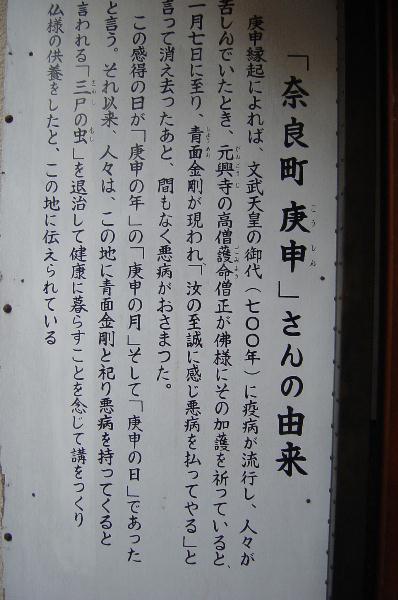 「奈良町庚申」さんの由来
庚申縁起によれば、文武天皇の御代(七〇〇年)に疫病が流行し、人々が
苦しんでいたとき、元興寺の高僧護命僧正が佛様にその加護を祈っていると、
一月七日に至り、青面金剛が現われ「汝の至誠に感じ悪病を払ってやる」と
言って消え去ったあと、間もなく悪病がおさまつた。
この感得の日が「庚申の年」の「庚申の月」そして「庚申の日」であった
と言う。それ以来、人々は、この地に青面金剛と祀り悪病を持ってくると
言われる「三尸の虫」を退治して健康に暮らすことを念じて講をつくり
仏様の供養をしたと、この地に伝えられている